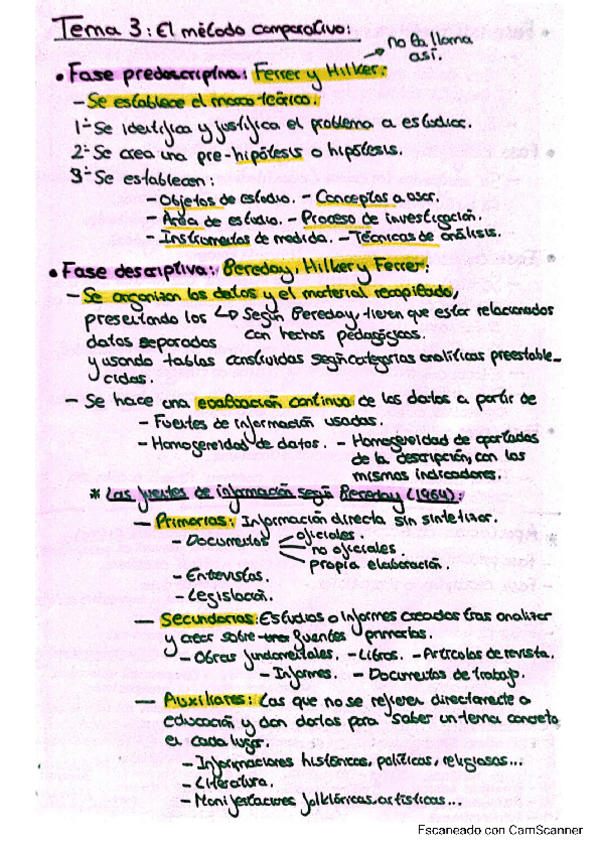 Tema 3: El método comparativo:
• Fase predescriptiva: Ferrer y Hilker: → no la llama así.
- Se establece el marco teórico:
1º- Se identifica y justifica el problema a estudiar.
2º- Se crea una pre-hipótesis o hipótesis.
3º- Se establecen:
- Objetos de estudio. - Conceptos a usar.
- Área de estudio. - Proceso de investigación.
- Instrumentos de medida. - Técnicas de análisis.
• Fase descriptiva: Bereday, Hilker y Ferrer:
- Se organizan los datos y el material recopilado,
presentando los ↳ Según Bereday, tienen que estar relacionados
datos separados con hechos pedagógicos.
y usando tablas construidas según categorías analíticas preestable_
cidas.
- Se hace una evaluación continua de los datos a partir de
- Fuentes de información usadas.
- Homogeneidad de datos. - Homogeneidad de apartados
de la descripción, con los
mismos indicadores.
* Las fuentes de información según Bereday (1964):
- Primarias: Información directa sin sintetizar.
- Documentos oficiales.
no oficiales.
propia elaboración.
- Entrevistas.
- Legislación.
- Secundarias: Estudios o informes creados tras analizar
y crear sobre fuentes primarias.
- Obras fundamentales. - Libros. - Artículos de revista.
- Informes. - Documentos de trabajo.
- Auxiliares: Las que no se refieren directamente a
educación y dan datos para saber un tema concreto
en cada lugar.
- Informaciones históricas, políticas, religiosas...
- Literatura.
- Manifestaciones folklóricas, artísticas...
Escaneado con CamScanner